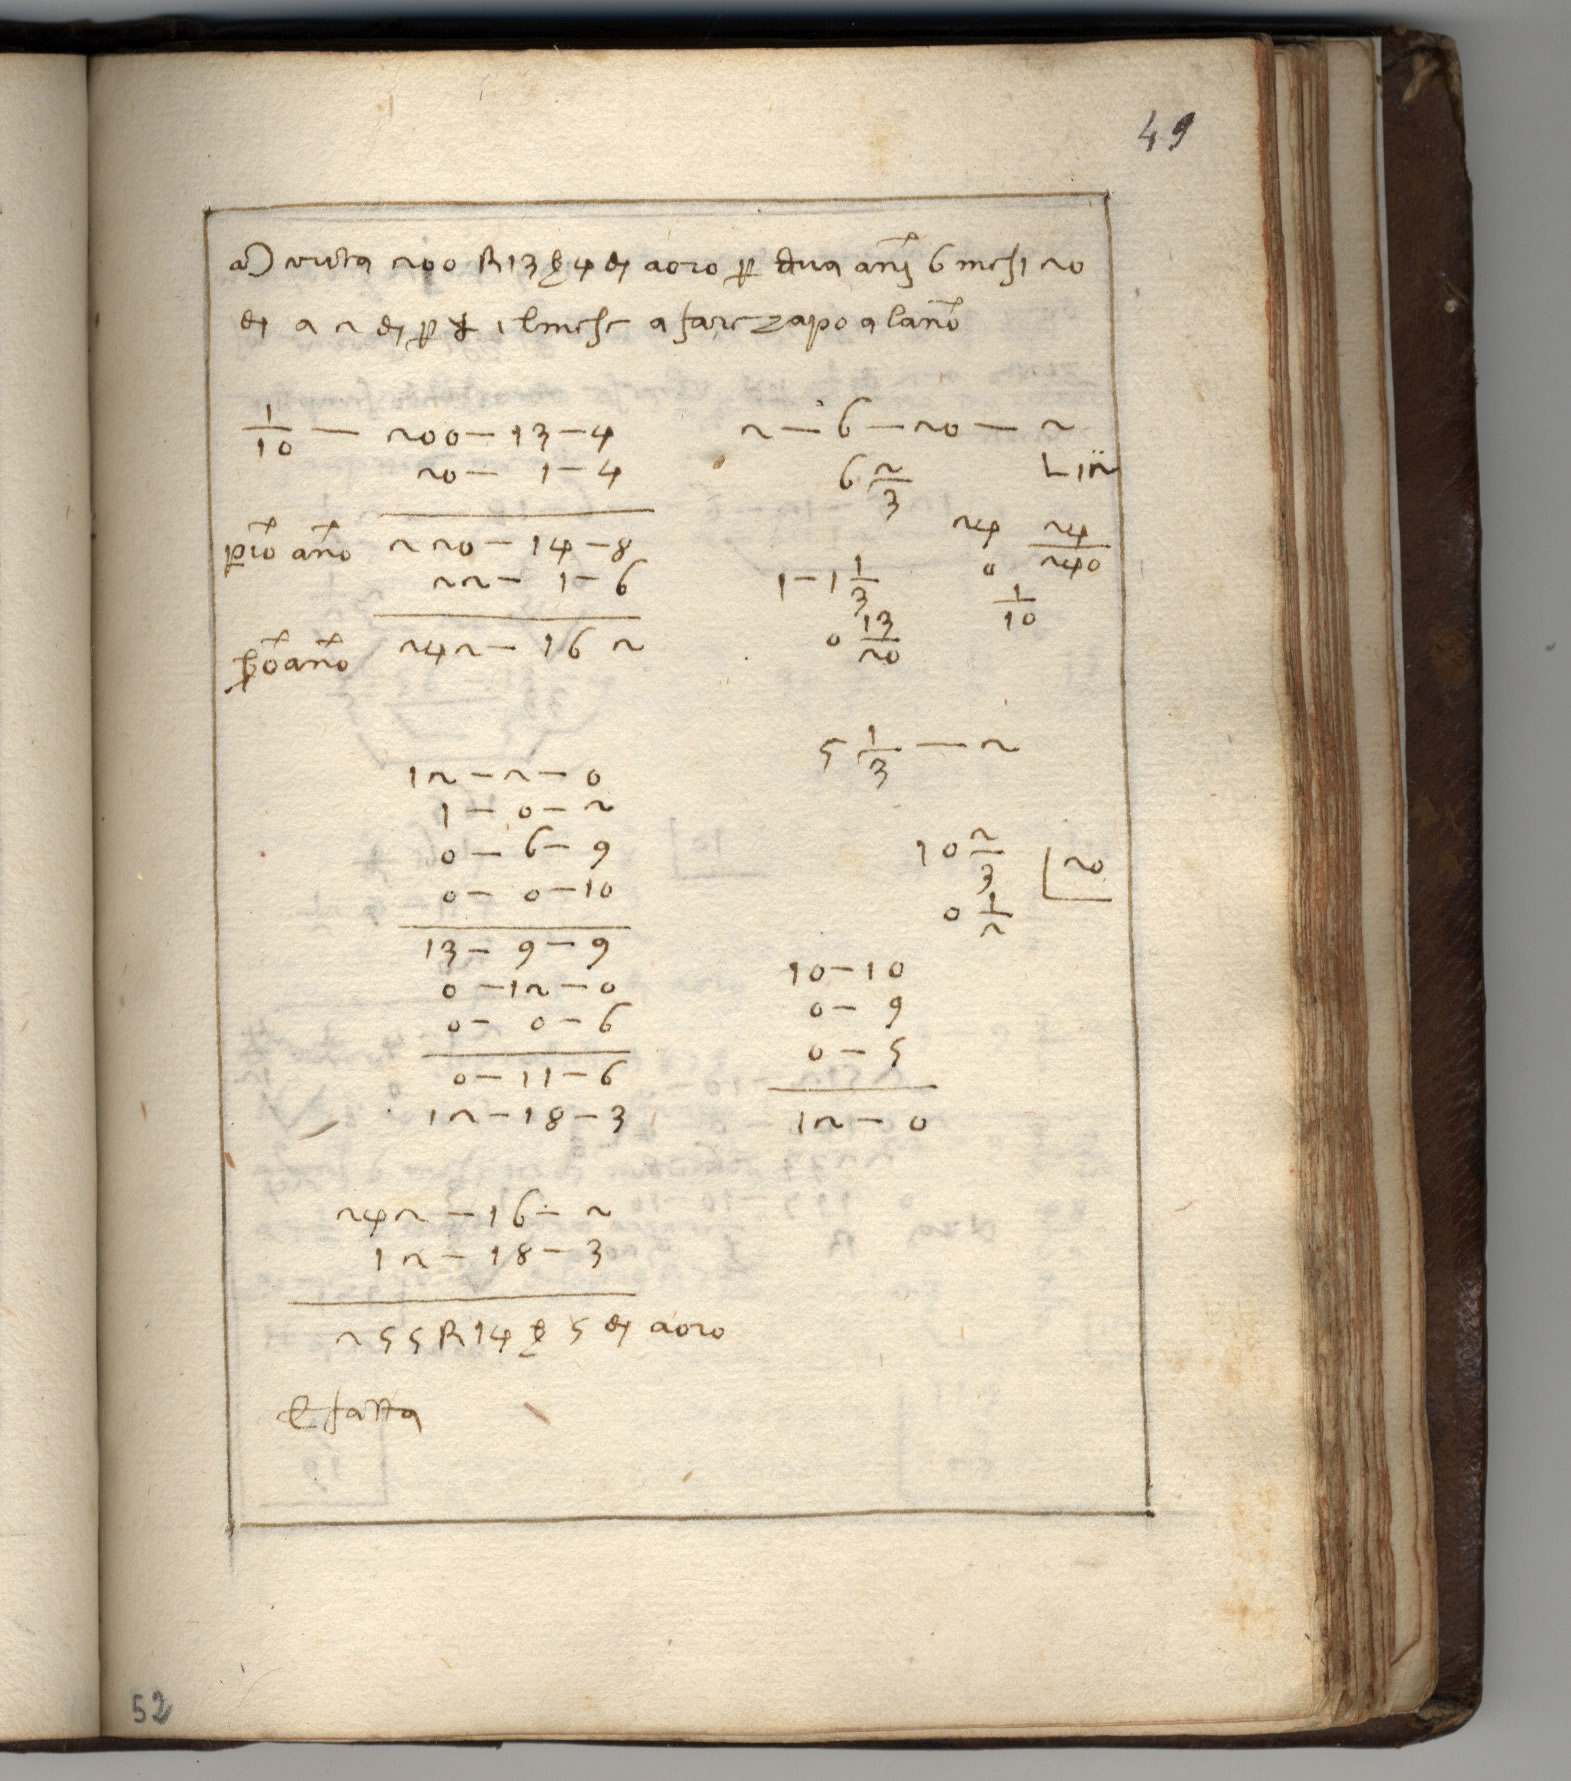 49
a vista 200 R 13 ꝭ 4 di a oro p dua anni 6 mesi 20
di a 2 di p il mese a fare zapo a lano
1/10 — 200 — 13 — 4
20 — 1 — 4
pio ano 220 — 14 — 8
22 — 1 — 6
ano 242 — 16 2
2 — 6 — 20 — 2
6 2/3 12
24 24/240
1 — 1 1/3 0
1/10
0 13/20
5 1/3 — 2
12 — 2 — 0
1 — 0 — 2
0 — 6 — 9
0 — 0 — 10
13 — 9 — 9
0 — 12 — 0
0 — 0 — 6
0 — 11 — 6
12 — 18 — 3
10 2/3 20
0 1/2
10 — 10
0 — 9
0 — 5
12 — 0
242 — 16 — 2
12 — 18 — 3
255 R 14 ꝭ 5 di a oro
E fatta
52